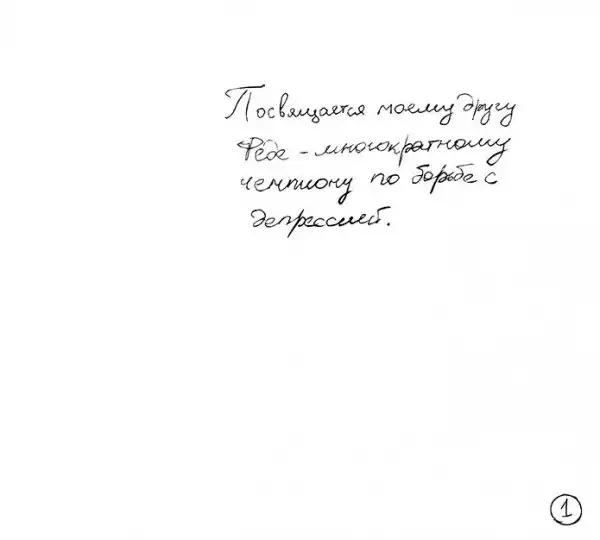 Посвящается моему другу
Феде - многократному
чемпиону по борьбе с
депрессией.
1